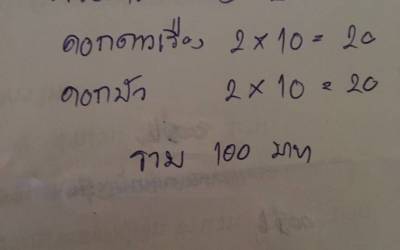 ดอกดาวเรือง 2 × 10 = 20
ดอกบัว 2 × 10 = 20
รวม 100 บาท